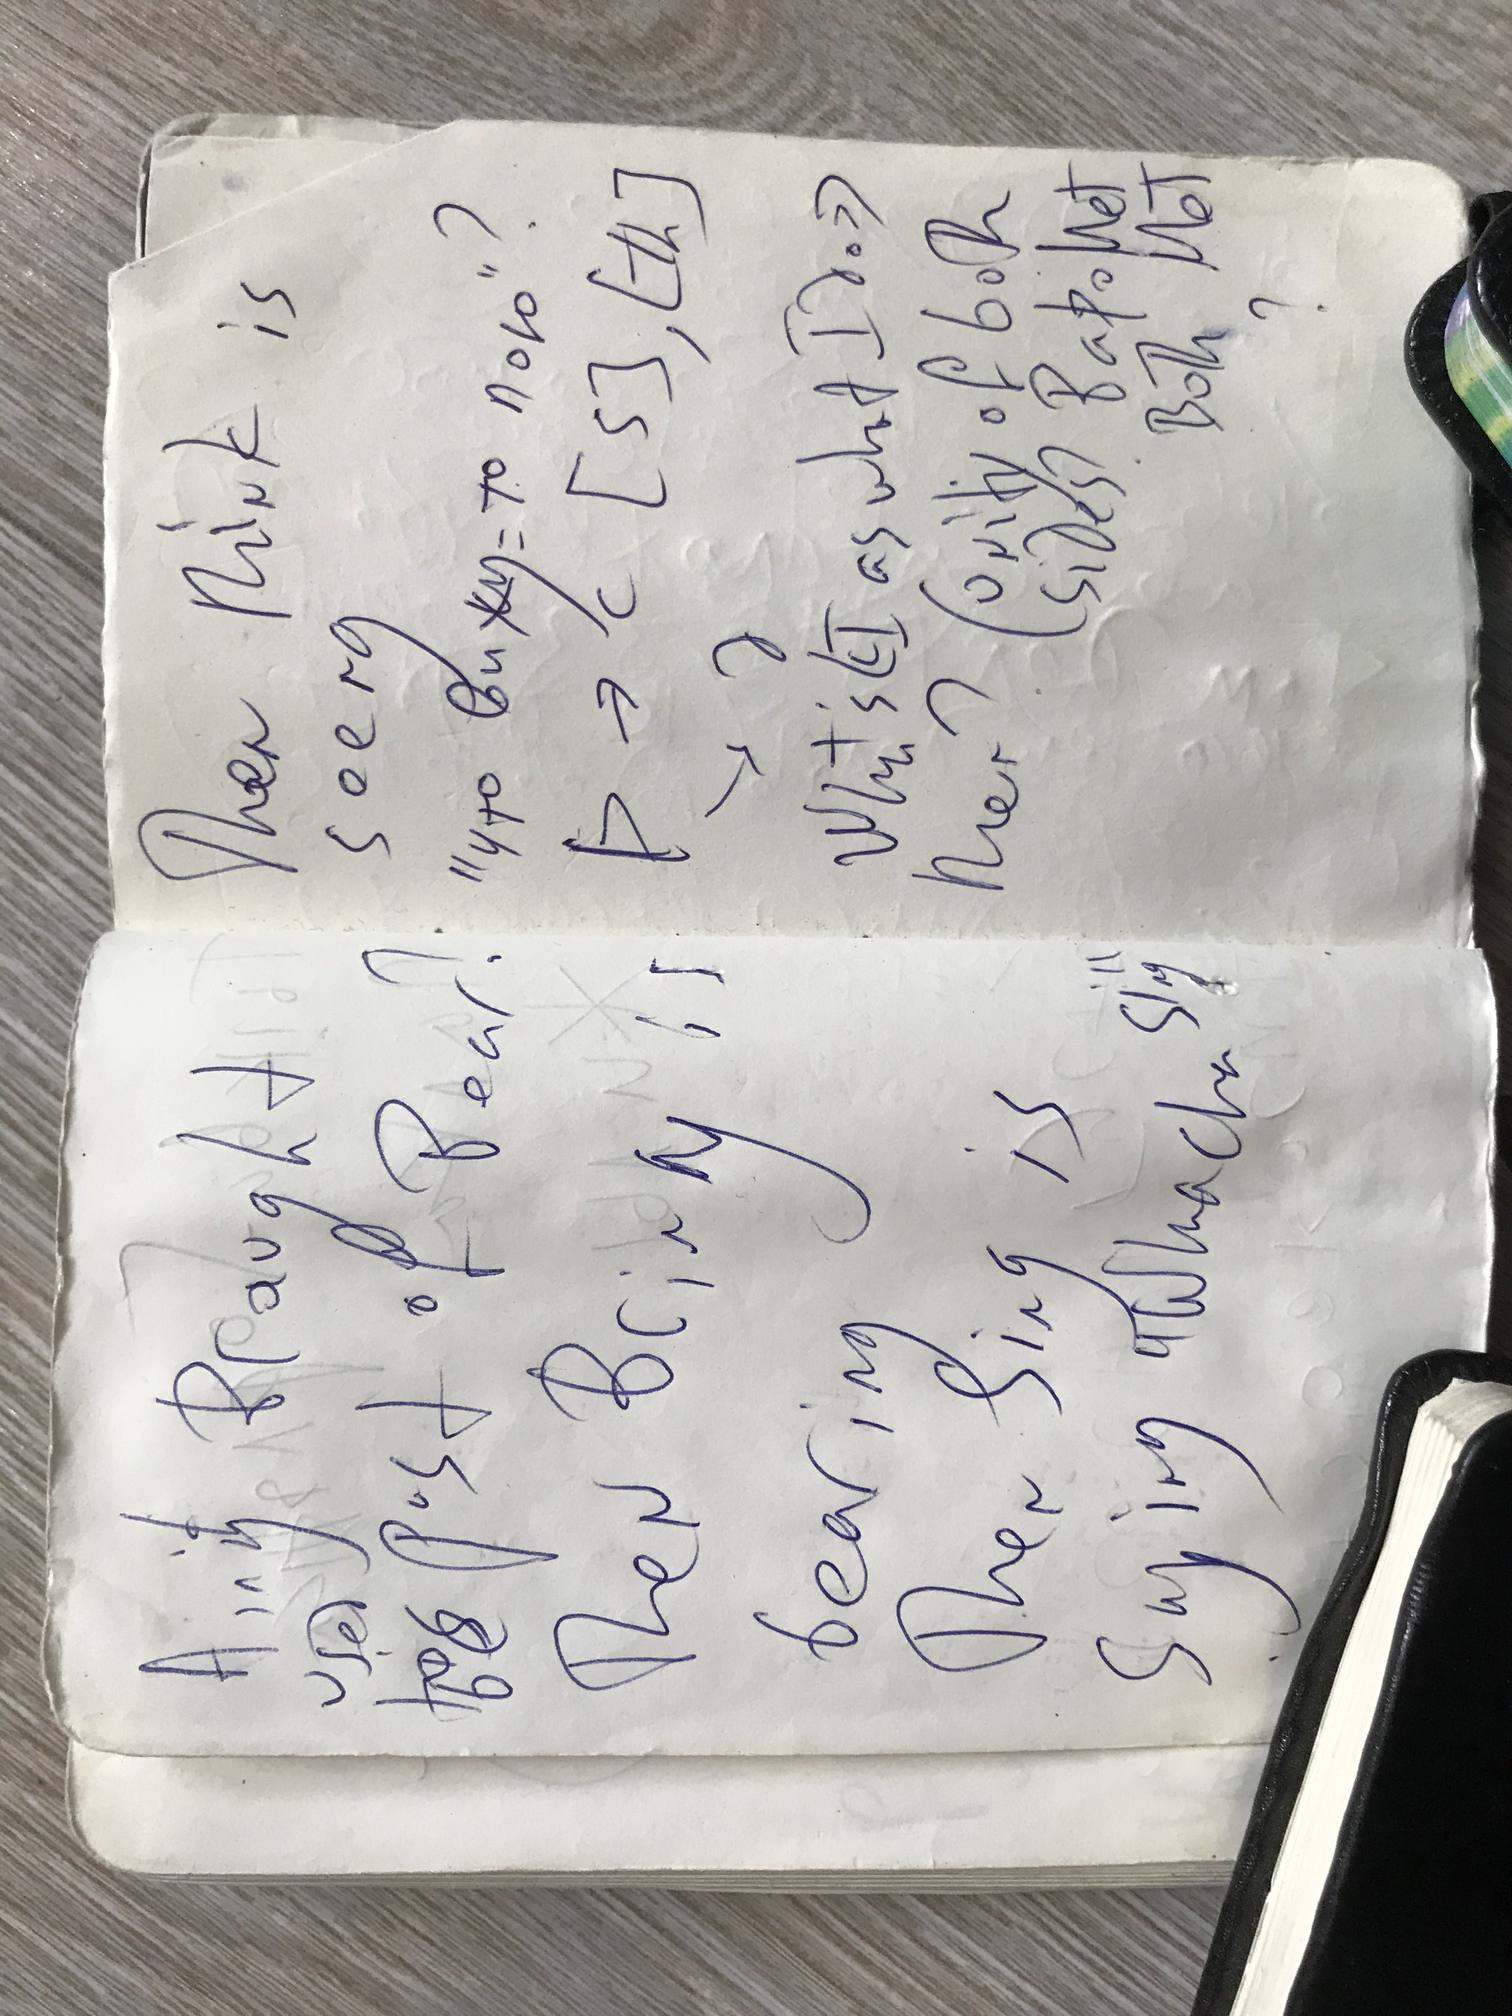 Ain't Braught
used
past of Bear?
Then Bring is
bearing
Then Sing is
Saying "Whacha sing"
Then think is
seeng
"что вижу = то пою"?
→ c [s], [th]
→ ?
What is I as what I do =>
her? (unity of both
sides? Bapohet
Both het
?